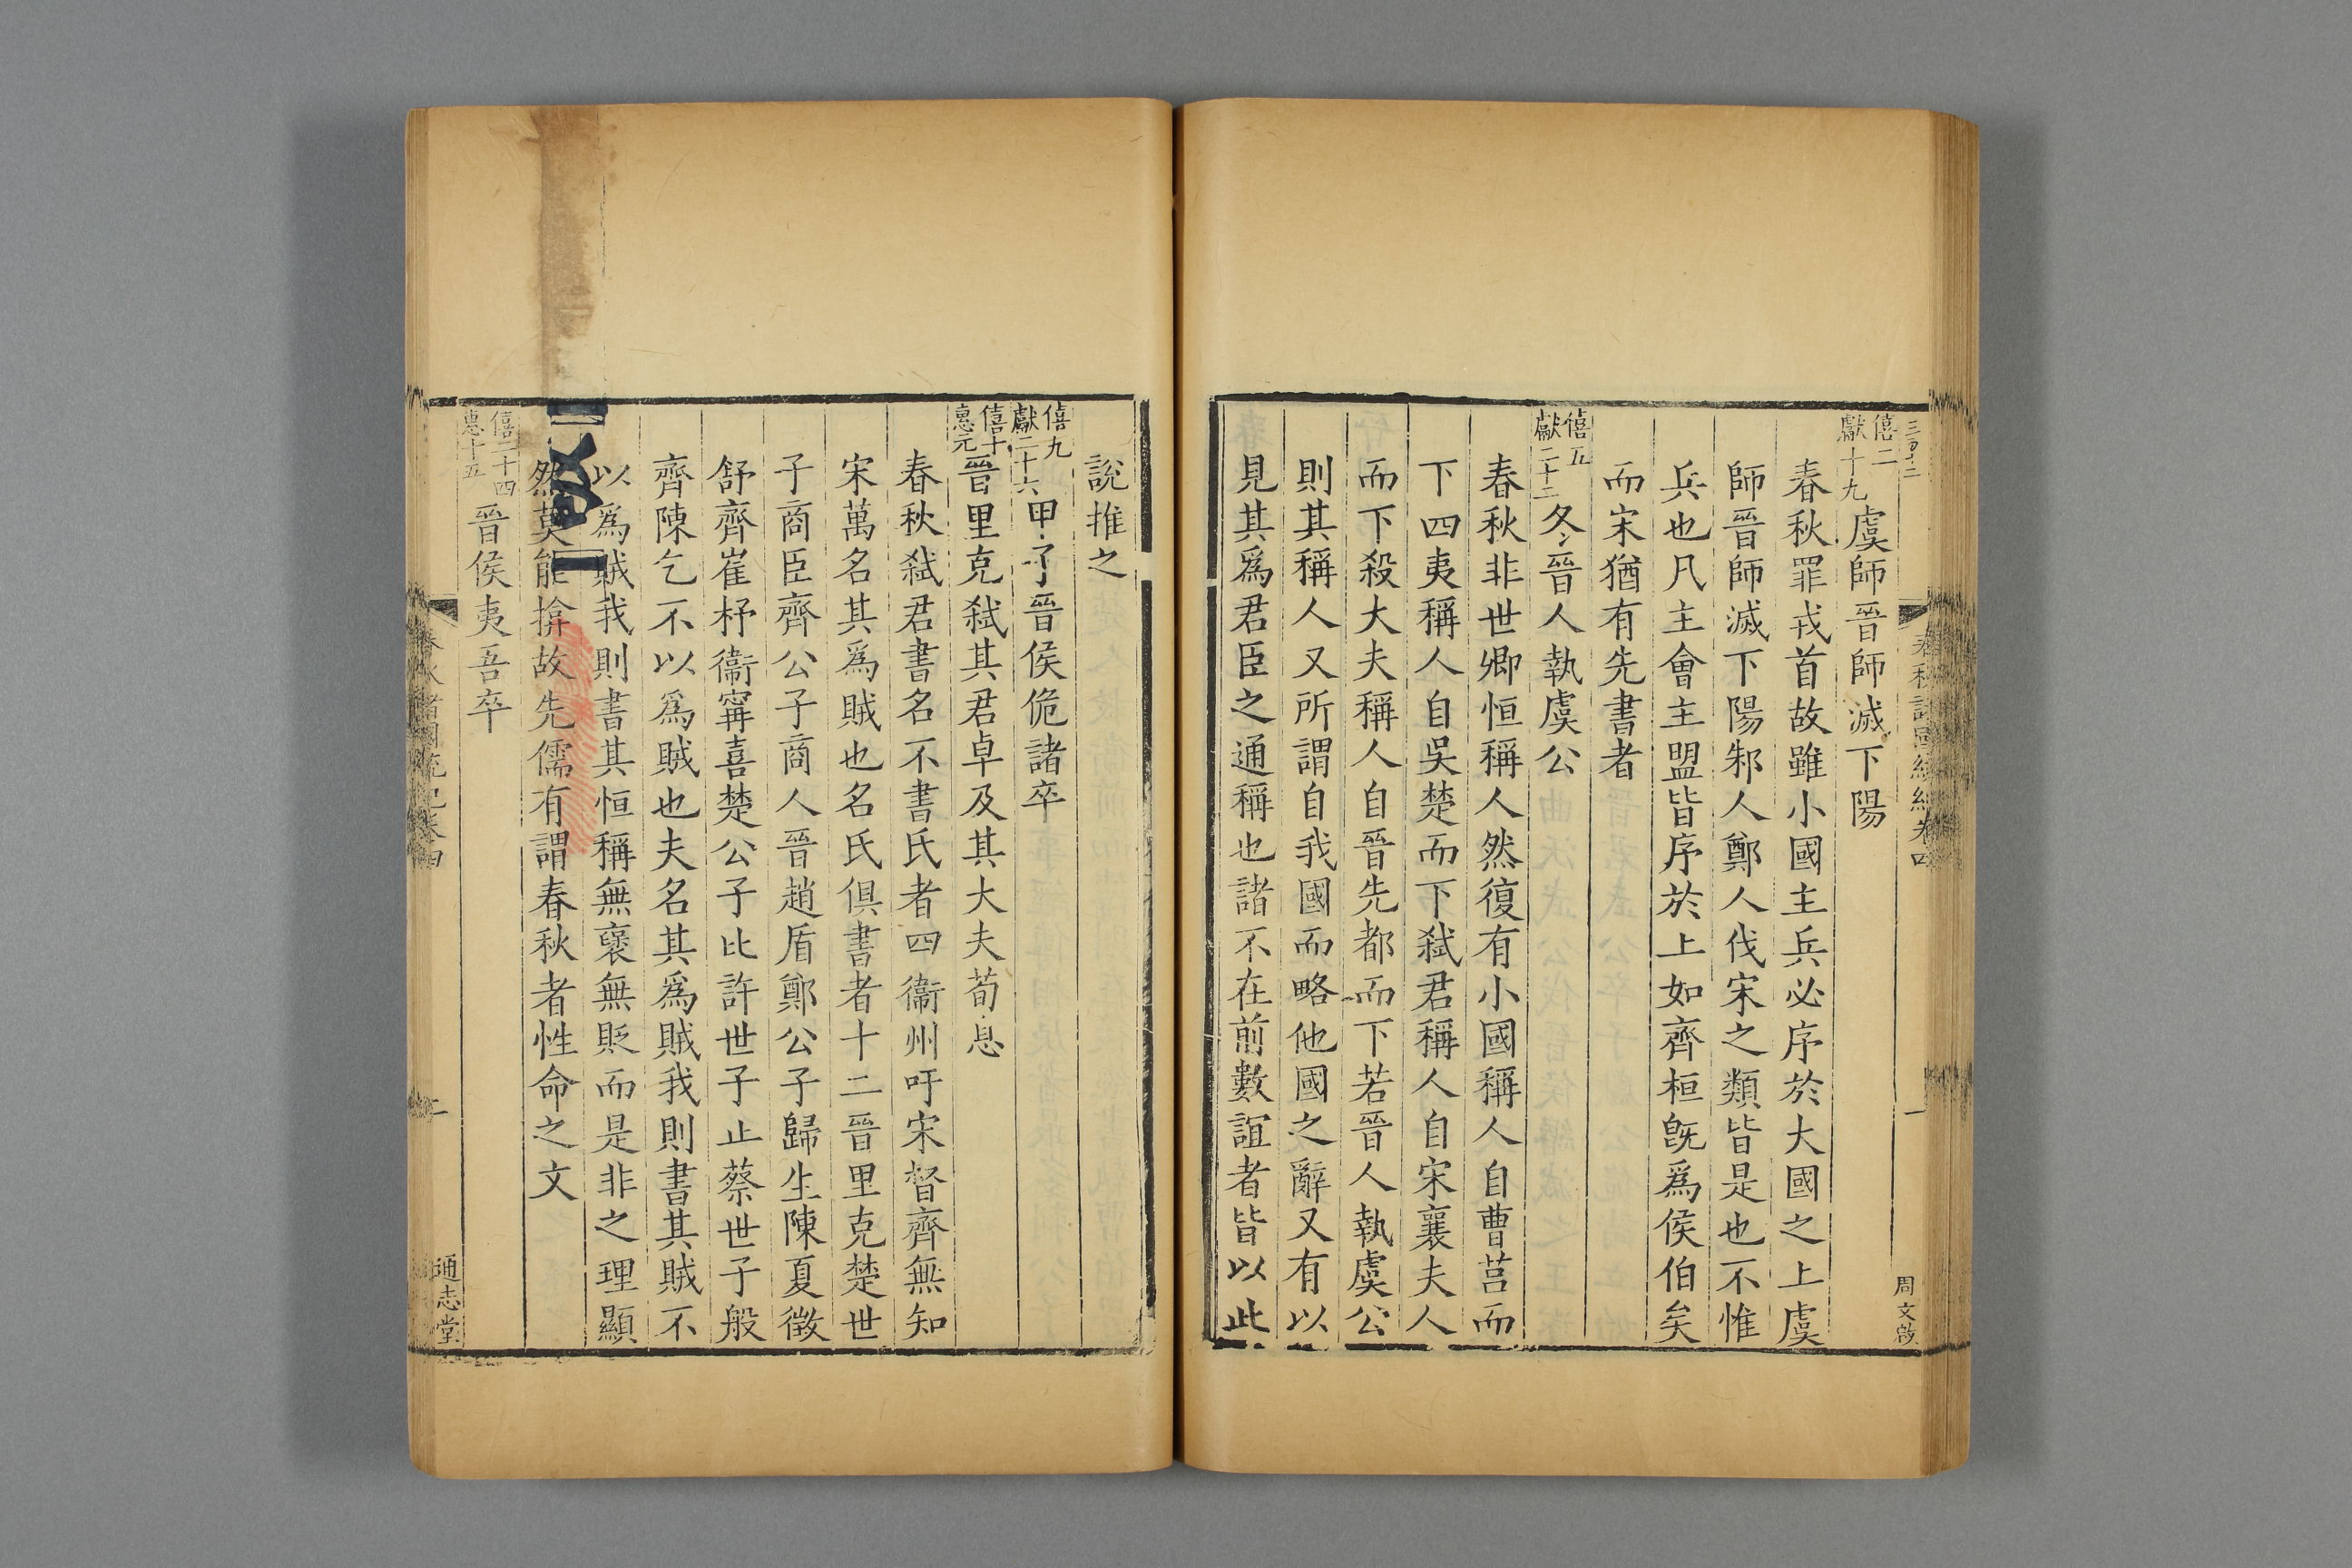 春秋諸國統紀卷四
一
周文啟
僖二獻十九虞師晉師滅下陽
春秋罪戎首故雖小國主兵必序於大國之上虞
師晉師滅下陽邾人鄭人伐宋之類皆是也不惟
兵也凡主會主盟皆序於上如齊桓旣爲侯伯矣
而宋猶有先書者
僖五獻二十二冬晉人執虞公
春秋非世卿恒稱人然復有小國稱人自曹莒而
下四夷稱人自吳楚而下弒君稱人自宋襄夫人
而下殺大夫稱人自晉先都而下若晉人執虞公
則其稱人又所謂自我國而略他國之辭又有以
見其爲君臣之通稱也諸不在前數誼者皆以此
說推之
僖九獻二十六甲子晉侯佹諸卒
僖十惠元晉里克弒其君卓及其大夫荀息
春秋弒君書名不書氏者四衞州吁宋督齊無知
宋萬名其爲賊也名氏俱書者十二晉里克楚世
子商臣齊公子商人晉趙盾鄭公子歸生陳夏徵
舒齊崔杼衞甯喜楚公子比許世子止蔡世子般
齊陳乞不以爲賊也夫名其爲賊我則書其賊不
以爲賊我則書其恒稱無襃無貶而是非之理顯
然莫能揜故先儒有謂春秋者性命之文
僖二十四惠十五晉侯夷吾卒
春秋諸國統紀卷四
二
通志堂